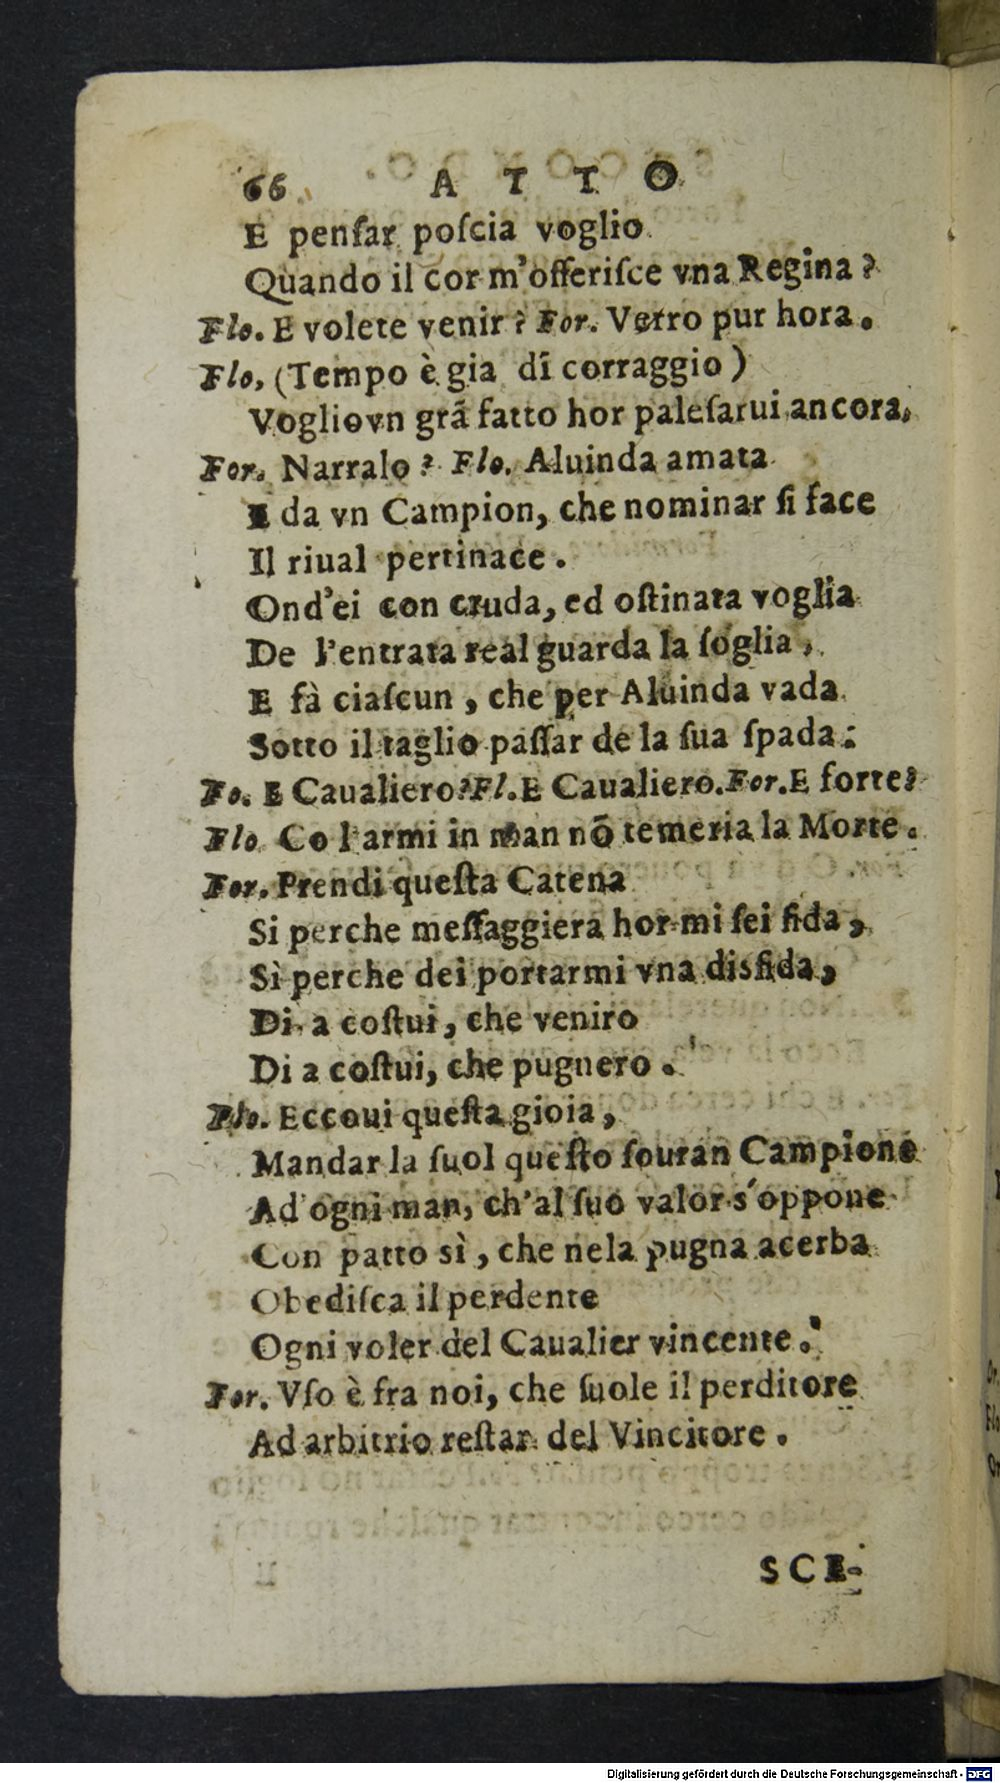 66 ATTO
E penſar poſcia voglio
Quando il cor m'offeriſce vna Regina?
Flo. E volete venir? For. Verro pur hora.
Flo. (Tempo è gia di corraggio)
Voglio vn grã fatto hor paleſarui ancora,
For. Narralo? Flo. Aluinda amata
E da vn Campion, che nominar ſi face
Il riual pertinace.
Ond'ei con cruda, ed oſtinata voglia
De l'entrata real guarda la ſoglia,
E fà ciaſcun, che per Aluinda vada
Sotto il taglio paſſar de la ſua ſpada:
Fo. E Caualiero? Fl. E Caualiero. For. E forte?
Flo. Co l'armi in man nõ temeria la Morte.
For. Prendi queſta Catena
Si perche meſſaggiera hor mi ſei fida,
Sì perche dei portarmi vna disfida,
Di a coſtui, che veniro
Di a coſtui, che pugnero.
Flo. Eccoui queſta gioia,
Mandar la ſuol queſto ſouran Campione
Ad ogni man, ch'al ſuo valor s'oppone
Con patto sì, che nela pugna acerba
Obediſca il perdente
Ogni voler del Caualier vincente.
For. Vſo è fra noi, che ſuole il perditore
Ad arbitrio reſtar del Vincitore.
SCE-
Digitalisierung gefördert durch die Deutsche Forschungsgemeinschaft - DFG